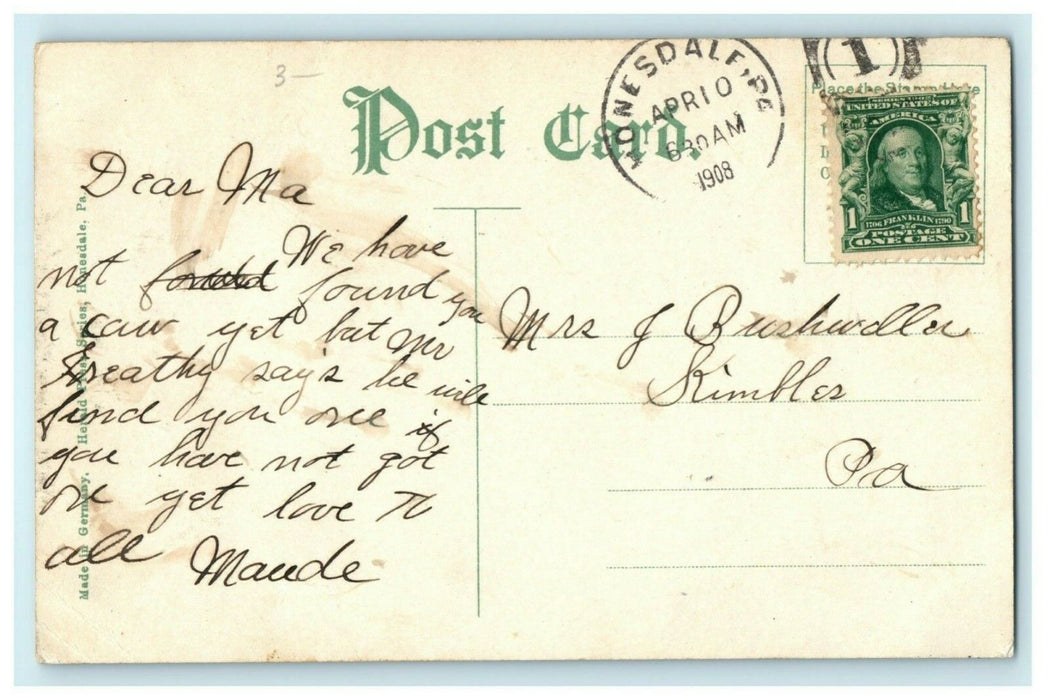 3-
Post Card.
HONESDALE, PA.
APR 10
630 AM
1908
1
Place the Stamp Here
SERIES 1902
UNITED STATES OF
AMERICA
1 1
1706 FRANKLIN 1790
POSTAGE
ONE CENT
Dear Ma
We have
not found you
a cow yet but Mr
says he will
find you one if
you have not got
one yet love to
all Maude
Mrs J Bushwdller
Kimbles
Pa
Made in Germany. Herald Press Series, Honesdale, Pa.